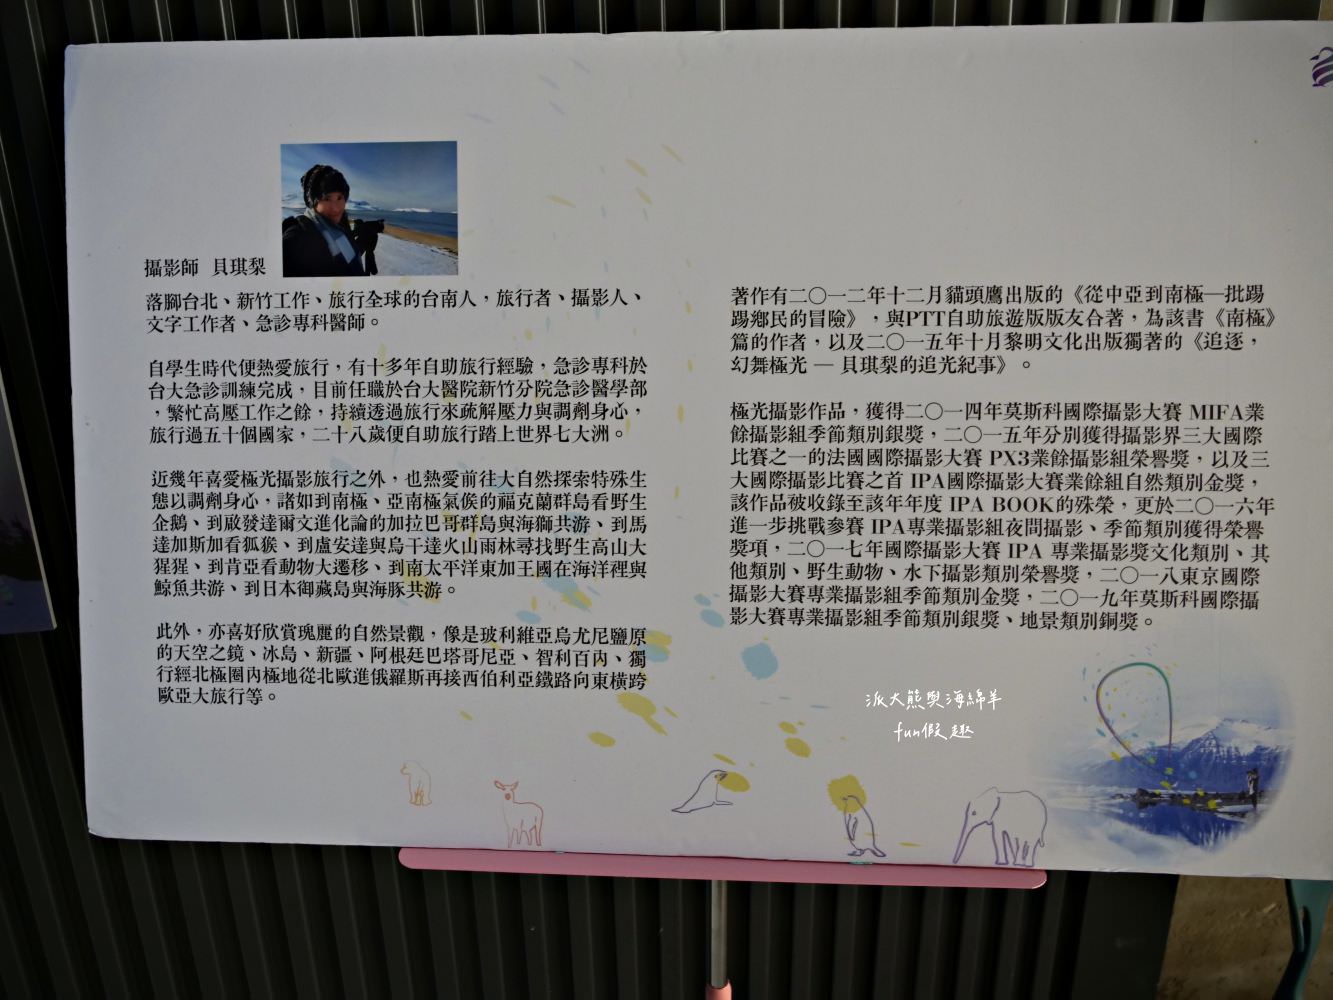 攝影師 貝琪梨
落腳台北、新竹工作、旅行全球的台南人，旅行者、攝影人、
文字工作者、急診專科醫師。
自學生時代便熱愛旅行，有十多年自助旅行經驗，急診專科於
台大急診訓練完成，目前任職於台大醫院新竹分院急診醫學部
，繁忙高壓工作之餘，持續透過旅行來疏解壓力與調劑身心，
旅行過五十個國家，二十八歲便自助旅行踏上世界七大洲。
近幾年喜愛極光攝影旅行之外，也熱愛前往大自然探索特殊生
態以調劑身心，諸如到南極、亞南極氣侯的福克蘭群島看野生
企鵝、到啟發達爾文進化論的加拉巴哥群島與海獅共游、到馬
達加斯加看狐猴、到盧安達與烏干達火山雨林尋找野生高山大
猩猩、到肯亞看動物大遷移、到南太平洋東加王國在海洋裡與
鯨魚共游、到日本御藏島與海豚共游。
此外，亦喜好欣賞瑰麗的自然景觀，像是玻利維亞烏尤尼鹽原
的天空之鏡、冰島、新疆、阿根廷巴塔哥尼亞、智利百內、獨
行經北極圈內極地從北歐進俄羅斯再接西伯利亞鐵路向東橫跨
歐亞大旅行等。
著作有二〇一二年十二月貓頭鷹出版的《從中亞到南極—批踢
踢鄉民的冒險》，與PTT自助旅遊版版友合著，為該書《南極》
篇的作者，以及二〇一五年十月黎明文化出版獨著的《追逐，
幻舞極光 — 貝琪梨的追光紀事》。
極光攝影作品，獲得二〇一四年莫斯科國際攝影大賽 MIFA業
餘攝影組季節類別銀獎，二〇一五年分別獲得攝影界三大國際
比賽之一的法國國際攝影大賽 PX3業餘攝影組榮譽獎，以及三
大國際攝影比賽之首 IPA國際攝影大賽業餘組自然類別金獎，
該作品被收錄至該年年度 IPA BOOK的殊榮，更於二〇一六年
進一步挑戰參賽 IPA專業攝影組夜間攝影、季節類別獲得榮譽
獎項，二〇一七年國際攝影大賽 IPA 專業攝影獎文化類別、其
他類別、野生動物、水下攝影類別榮譽獎，二〇一八東京國際
攝影大賽專業攝影組季節類別金獎，二〇一九年莫斯科國際攝
影大賽專業攝影組季節類別銀獎、地景類別銅獎。
派大熊與海綿羊
fun假趣